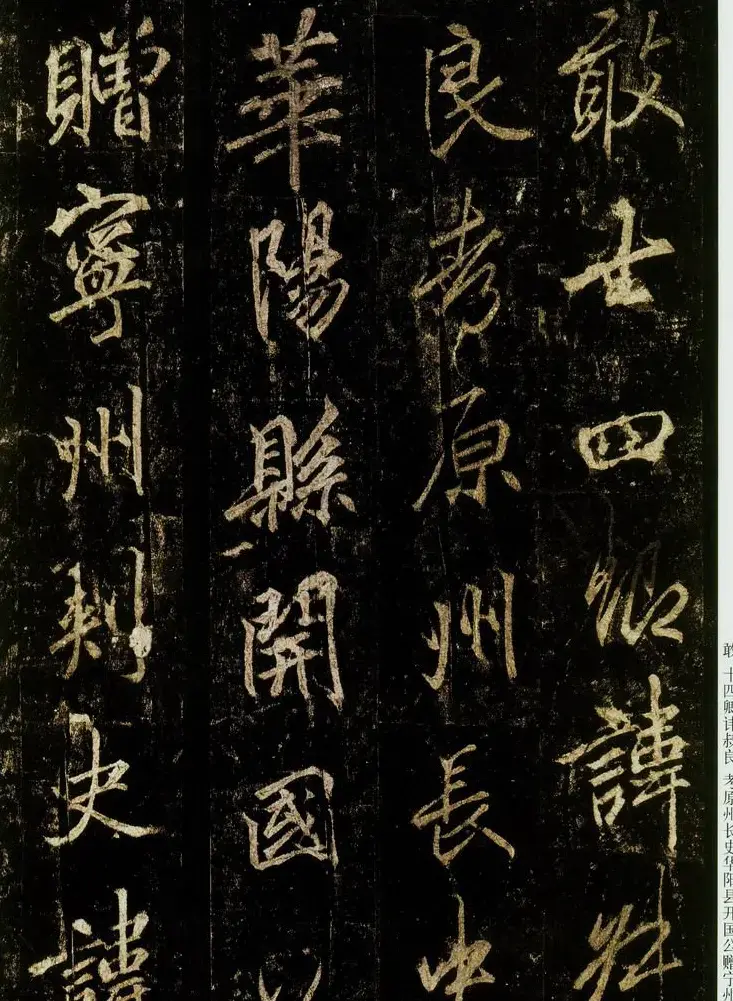 敢士四卿諱叔
良考原州長史
華陽縣開國公
贈寧州刺史諱
敢 十四卿讳叔良 考原州长史华阳县开国公赠宁州